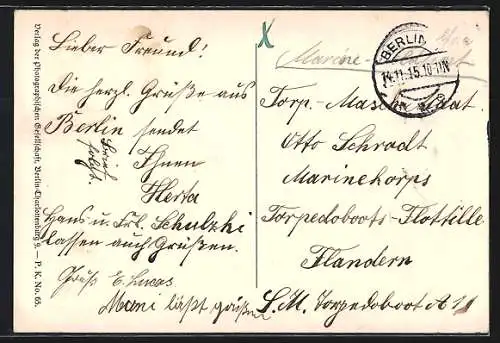 Verlag der Photographischen Gesellschaft, Berlin-Charlottenburg 9. — P. K. No. 65.
Lieber Freund!
Die herzl. Grüße aus
Berlin sendet
Ihnen
Herta
Brief
folgt.
Hans u. Frl. Schulzki
lassen auch Grüßen.
Gruß E. Lucas
Mani läßt grüßen
BERLIN
14.11.15.10-11N
Marine-
Torp.-Masch.-Maat.
Otto Schrodt
Marinekorps
Torpedoboots-Flottille
Flandern
S. M. Torpedoboot A 11